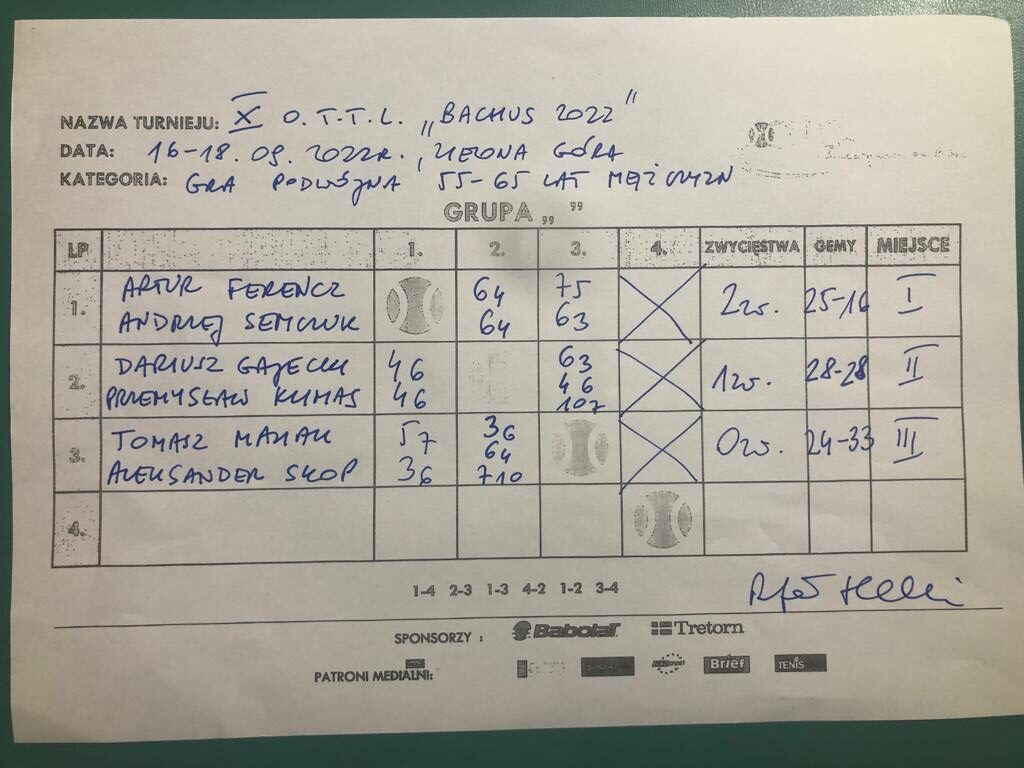 NAZWA TURNIEJU: X O.T.T.L. „BACHUS 2022”
DATA: 16-18.09.2022R., ZIELONA GÓRA
KATEGORIA: GRA PODWÓJNA 55-65 LAT MĘŻCZYZN
GRUPA „ ”
LP 1. 2. 3. 4. ZWYCIĘSTWA GEMY MIEJSCE
1. ARTUR FERENCZ 64 75 2zw. 25-16 I
ANDRZEJ SEMCZUK 64 63
2. DARIUSZ GAJECKI 46 63 1zw. 28-28 II
PRZEMYSŁAW KLIMAS 46 46
107
3. TOMASZ 57 36 0zw. 24-33 III
64
ALEKSANDER SKOP 36 710
4.
1-4 2-3 1-3 4-2 1-2 3-4
SPONSORZY : Babolat Tretorn
PATRONI MEDIALNI: Brief TENIS